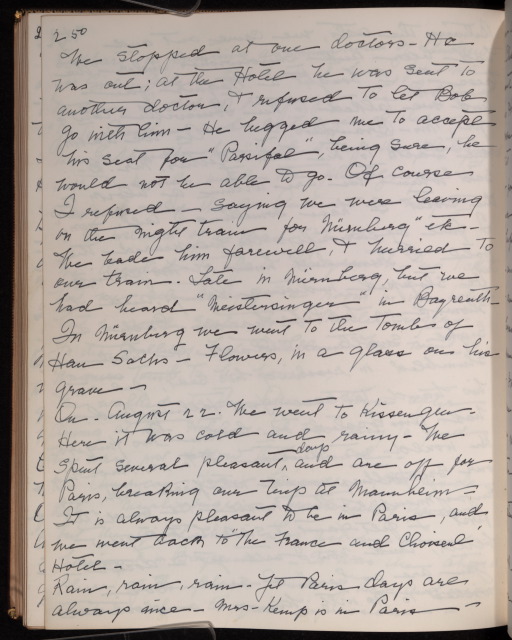 250
We stopped at one doctors - He
was out; at the Hotel he was sent to
another doctor, & refused to let Bob
go with him - He begged me to accept
his seat for "Parsifal", being sure, he
would not be able to go. Of course
I refused - saying we were leaving
on the night train for Nürnberg" etc -
We bade him farewell, & hurried to
our train. Late in Nürnberg, but we
had heard "Meistersinger" in Bayreuth -
In Nürnberg we went to the Tomb of
Han Sachs - Flowers, in a glass on his
grave -
On - August 22. We went to Kissengen -
Here it was cold and rainy - We
spent several pleasant days and are off for
Paris, breaking our trip at Mannheim -
It is always pleasant to be in Paris, and
we went back to "The France and Choiseul"
Hotel -
Rain, rain, rain - Yet Paris days are
always nice - Mrs - Kemp is in Paris -